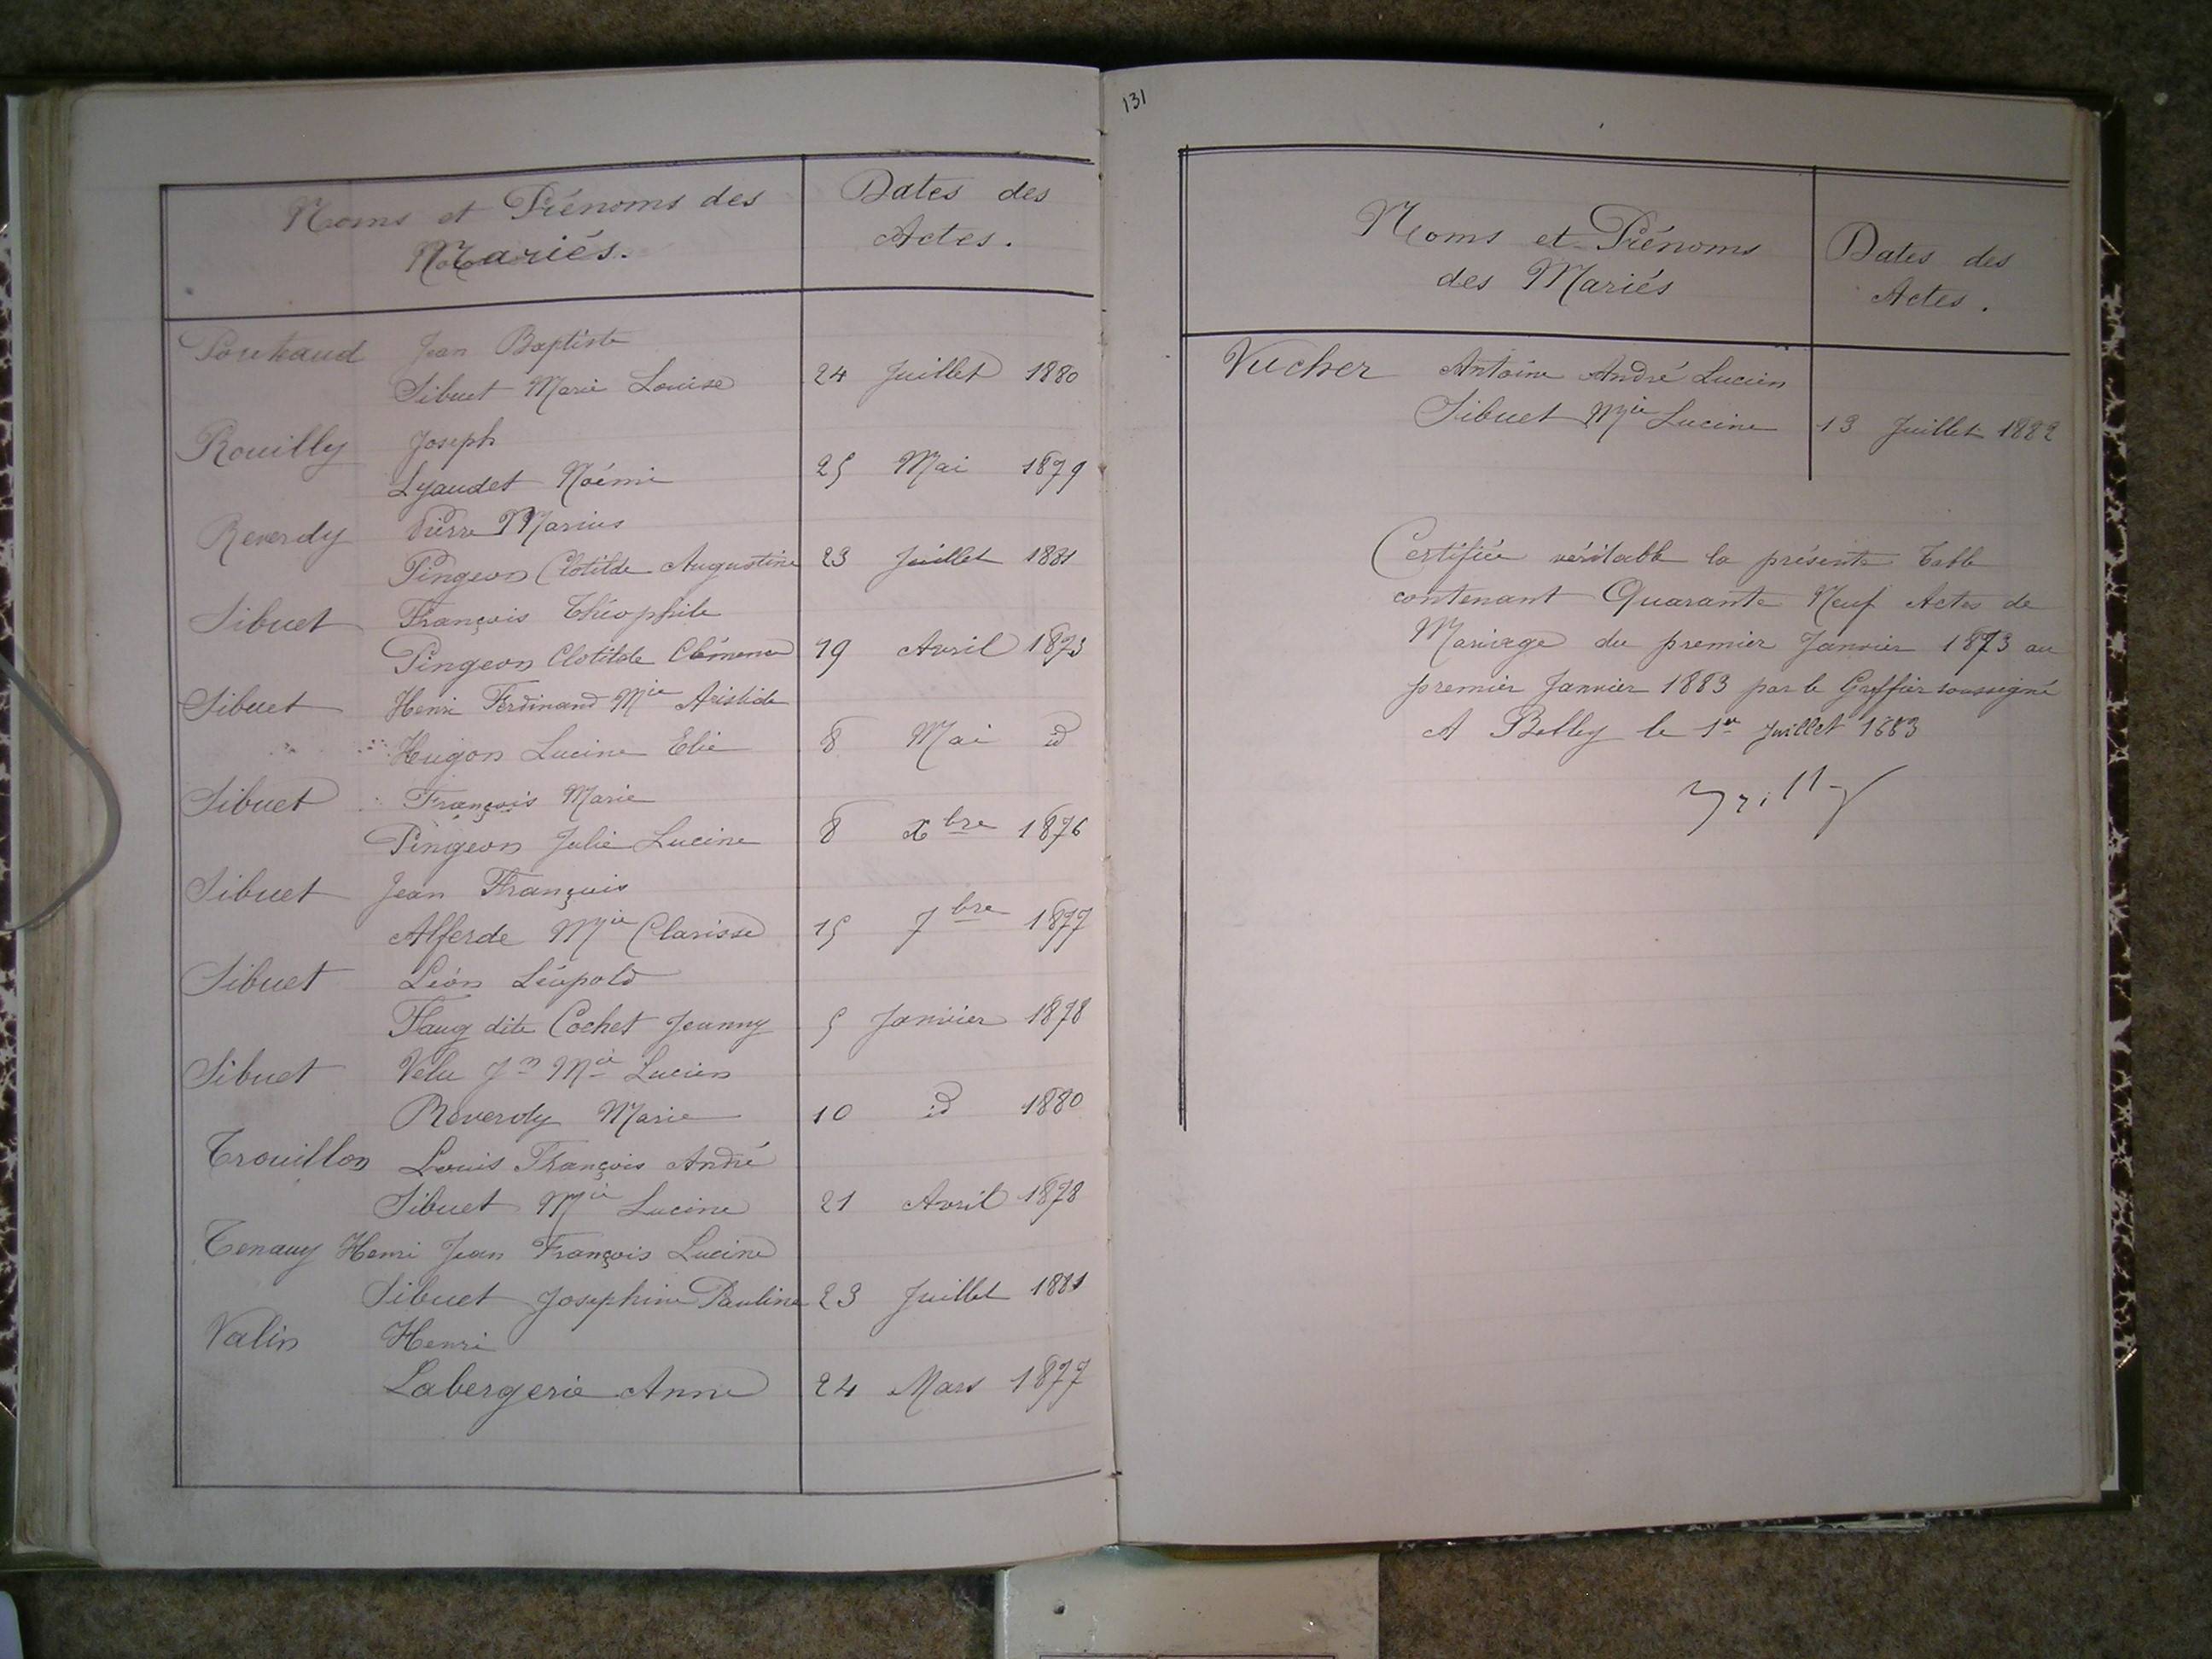 Noms et Prénoms des
Mariés.
Dates des
Actes.
Jean Baptiste
Sibuet Marie Louise 24 Juillet 1880
Rouilly Joseph
Lyaudet Noémie 25 Mai 1879
Reverdy Pierre Marius
Pingeon Clotilde Augustine 23 Juillet 1881
Sibuet François Théophile
Pingeon Clotilde Clémence 19 Avril 1873
Sibuet Henri Ferdinand Mie Aristide
Hugon Lucine Elie 8 Mai id
Sibuet François Marie
Pingeon Julie Lucine 8 Xbre 1876
Sibuet Jean François
Alferde Mie Clarisse 15 7bre 1877
Sibuet Léon Léopold
Faug dite Cochet Jeanny 5 Janvier 1878
Sibuet Velu Jn Mie Lucien
Reverdy Marie 10 id 1880
Trouillon Louis François André
Sibuet Mie Lucine 21 Avril 1878
Tenauy Henri Jean François Lucine
Sibuet Josephine Pauline 23 Juillet 1881
Valin Henri
Labergerie Anne 24 Mars 1877
131
Noms et Prénoms
des Mariés
Dates des
Actes.
Vucher Antoine André Lucien
Sibuet Mie Lucine 13 Juillet 1882
Certifiée véritable la présente Table
contenant Quarante Neuf Actes de
Mariage du premier Janvier 1873 au
premier Janvier 1883 par le Greffier soussigné
A Belley le 1er Juillet 1883